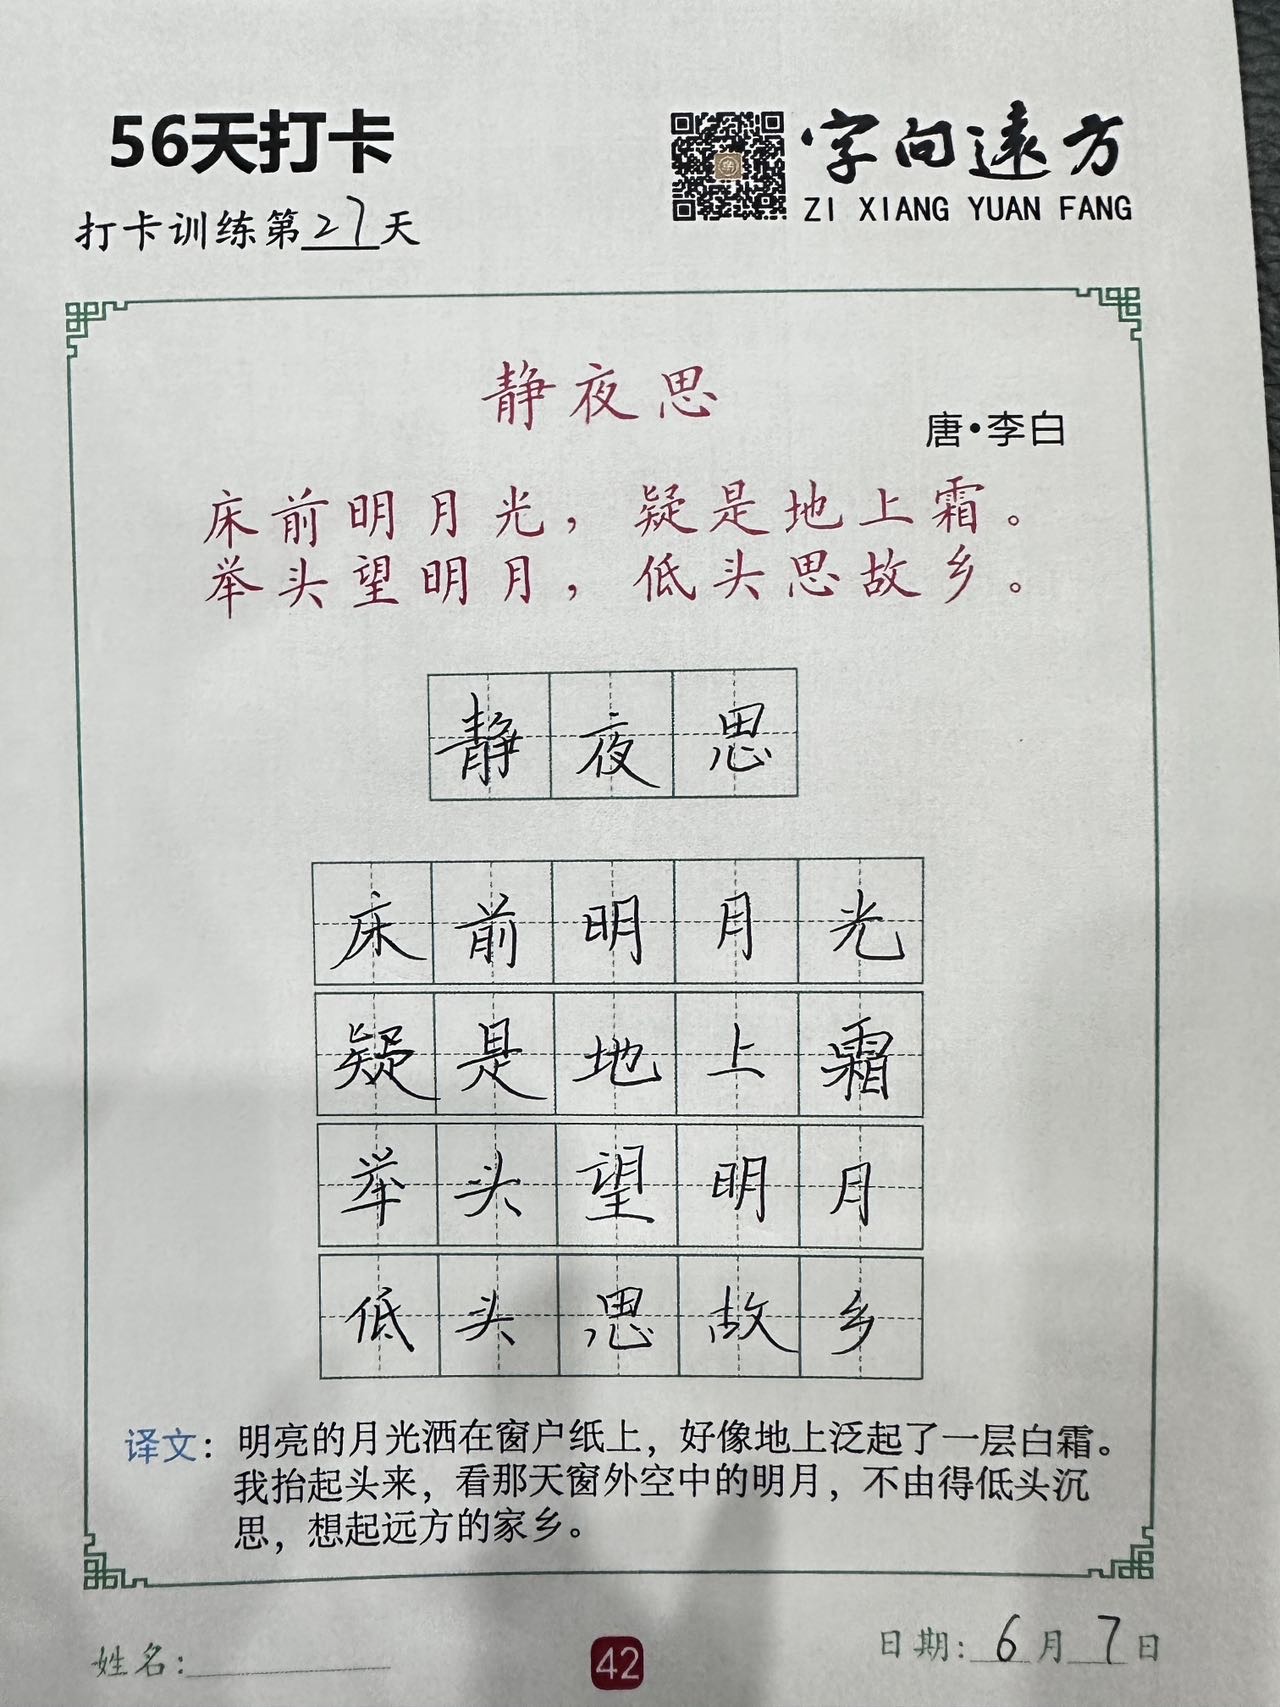 56天打卡
字向遠方
ZI XIANG YUAN FANG
打卡训练第27天
静夜思
唐·李白
床前明月光，疑是地上霜。
举头望明月，低头思故乡。
静夜思
床前明月光
疑是地上霜
举头望明月
低头思故乡
译文：明亮的月光洒在窗户纸上，好像地上泛起了一层白霜。
我抬起头来，看那天窗外空中的明月，不由得低头沉
思，想起远方的家乡。
姓名：
42
日期：6月7日